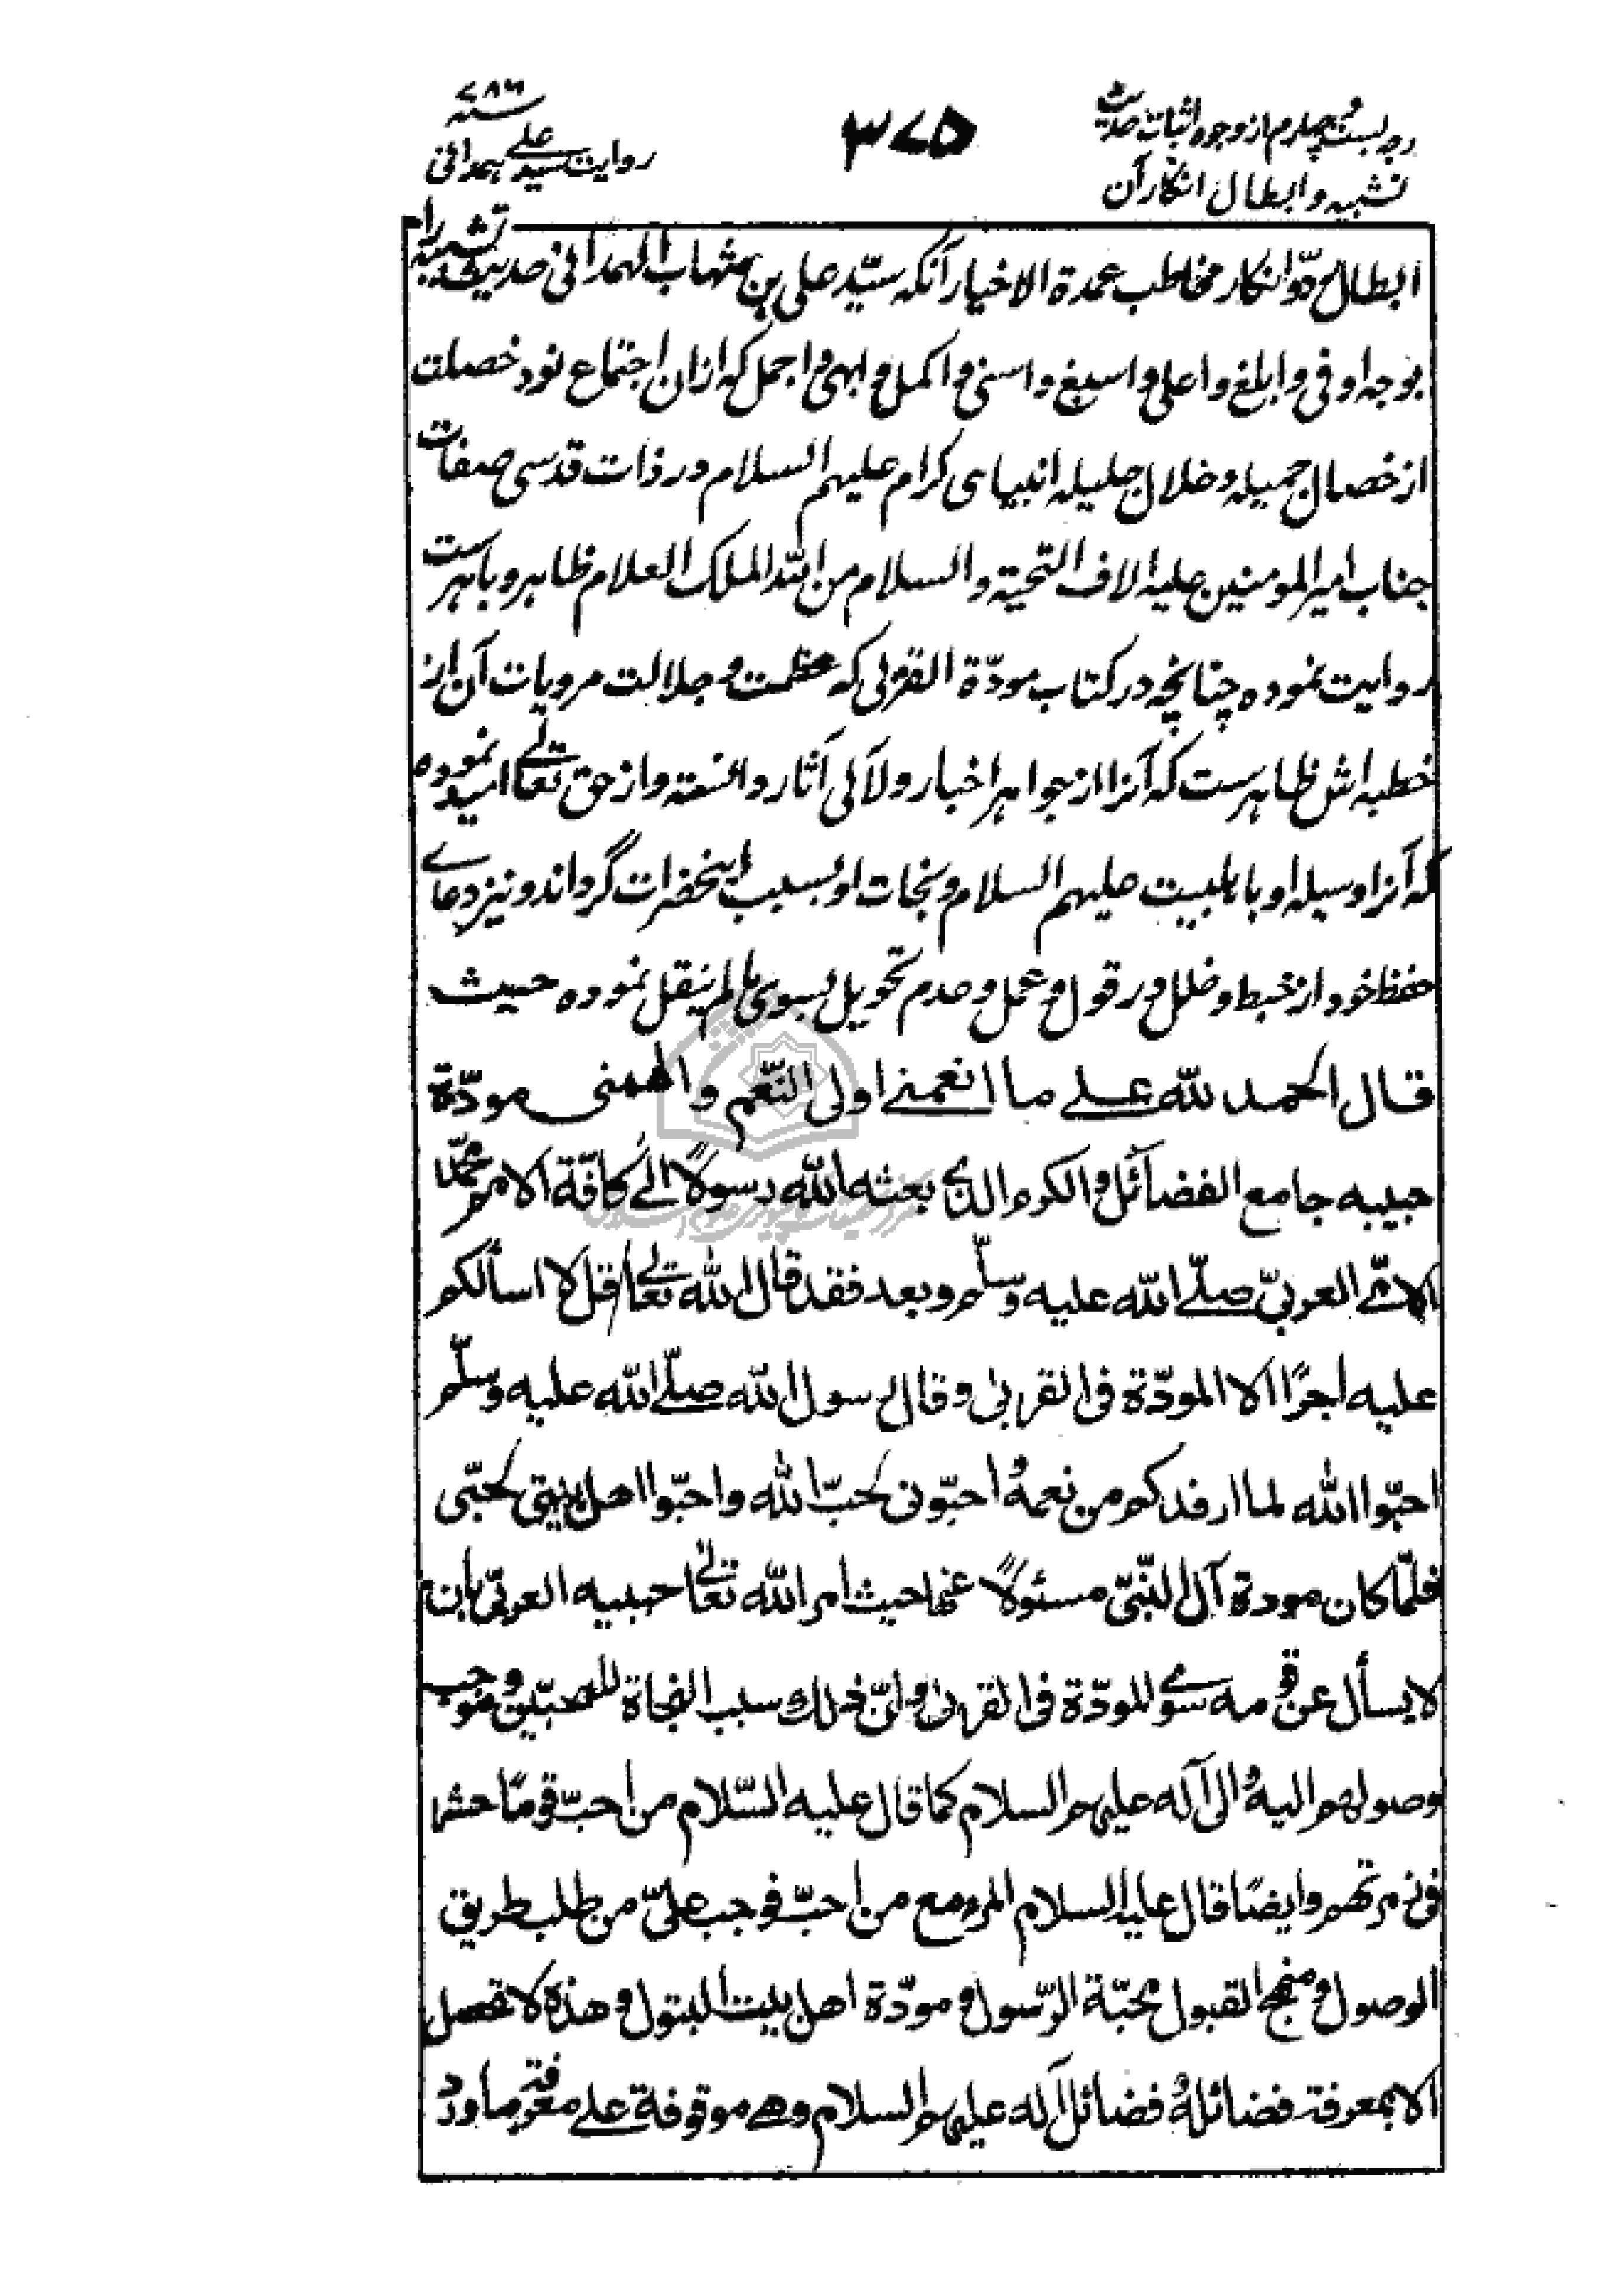 وجه بست و چهارم از وجوه اثبات حدیث
تشبیه و ابطال انکار آن
۳۷۵
۷۸۶ سنه
روایت سید علی همدانی
ابطال ردّ و انکار مخاطب عمدة الاخیار آنکه سیّد علی بن شهاب الهمدانی حدیث تشبیه را
بوجه اوفی و ابلغ و اعلی و اسبغ و اسنی و اکمل و ابهی و اجمل که ازان اجتماع نود خصلت
از خصال جمیله و خلال جلیله انبیای کرام علیهم السلام در ذات قدسی صفات
جناب امیر المومنین علیه الاف التحیة والسلام من الله الملک العلام ظاهر و باهرست
روایت نموده چنانچه در کتاب مودّة القربی که عظمت و جلالت مرویات آن از
خطبه اش ظاهرست که آنرا از جواهر اخبار و لآلی آثار دانسته و از حق تعالے امید نموده
که آنرا وسیله او باهلبیت علیهم السلام و نجات او بسبب اینحضرات گرداند و نیز دعاے
حفظ خود از خبط و خلل در قول و عمل و عدم تحویل بسوی ما لم ینقل نموده حیث
قال الحمد لله علے ما انعمنے اولی النّعم والهمنی مودّة
حبیبه جامع الفضائل والکرم الذی بعثه الله رسولًا الی کافّة الامم محمّد
الامّے العربیّ صلّے الله علیه وسلّم وبعد فقد قال الله تعالے قل لا اسألکم
علیه اجرًا الا المودّة فی القربی وقال رسول الله صلّے الله علیه وسلّم
احبّوا الله لما ارفدکم من نعمه واحبّونی لحبّ الله واحبّوا اهل بیتی لحبّی
فلمّا کان مودة آل النبّیّ مسئولًا عنها حیث امر الله تعالی حبیبه العربیّ بان
لا یسأل عن قومه سوے المودّة فی القربی وانّ ذلک سبب النجاة للمحبّین وموجب
وصولهم الیه والی آله علیهم السلام کما قال علیه السّلام من احبّ قومًا حشر
فی زمرتهم وایضًا قال علیه السلام المرء مع من احبّ فوجب علیّ من طلب طریق
الوصول ومنهج القبول محبّة الرّسول ومودّة اهل بیت البتول وهذه لا تحصل
الا بمعرفة فضائله وفضائل آله علیهم السلام وهے موقوفة علے معرفة ما ورد